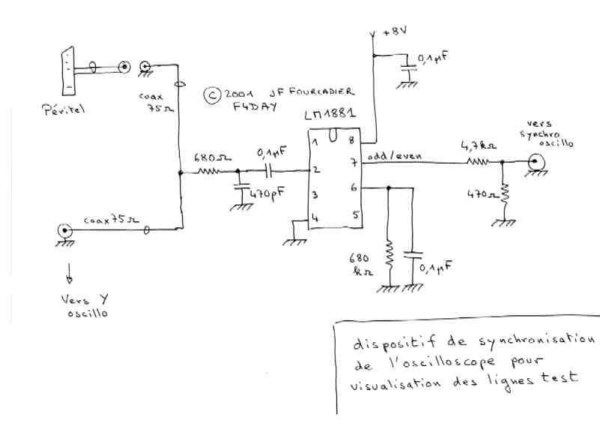 +8V
0,1µF
Péritel
coax
75Ω
© 2001 JF FOURCADIER
F4DAY
LM1881
1
2
3
4
8
7
6
5
680Ω
0,1µF
470pF
odd/even
4,7kΩ
470Ω
vers
synchro
oscillo
680
kΩ
0,1µF
coax 75Ω
Vers Y
oscillo
dispositif de synchronisation
de l'oscilloscope pour
visualisation des lignes test